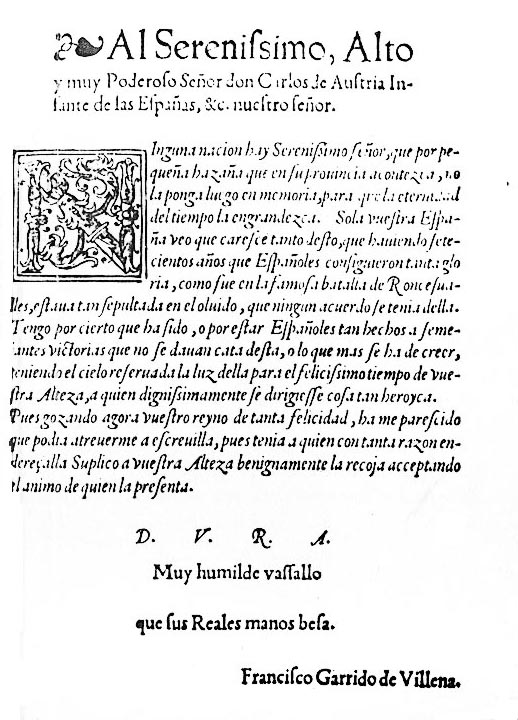 Al Sereniſsimo, Alto
y muy Poderoſo Señor don Carlos de Auſtria In-
fante de las Eſpañas, &c. nueſtro ſeñor.
NInguna nacion hay Sereniſsimo ſeñor, que por pe-
queña hazaña que en ſu prouincia acontezca, no
la ponga luego en memoria, para que la eternidad
del tiempo la engrandezca. Sola vueſtra Eſpa-
ña veo que careſce tanto deſto, que hauiendo ſete-
cientos años que Eſpañoles conſiguieron tanta glo
ria, como fue en la famoſa batalla de Ronceſua-
lles, eſtaua tan ſepultada en el oluido, que ningun acuerdo ſe tenia della.
Tengo por cierto que ha ſido, o por eſtar Eſpañoles tan hechos a ſeme-
jantes victorias que no ſe dauan cata deſta, o lo que mas ſe ha de creer,
teniendo el cielo reſeruada la luz della para el feliciſsimo tiempo de vue-
ſtra Alteza, a quien digniſsimamente ſe dirigieſſe coſa tan heroyca.
Pues gozando agora vueſtro reyno de tanta felicidad, ha me pareſcido
que podia atreuerme a eſcreuilla, pues tenia a quien con tanta razon en-
dereçalla Suplico a vueſtra Alteza benignamente la recoja acceptando
el animo de quien la preſenta.
D. V. R. A.
Muy humilde vaſſallo
que ſus Reales manos beſa.
Franciſco Garrido de Villena.